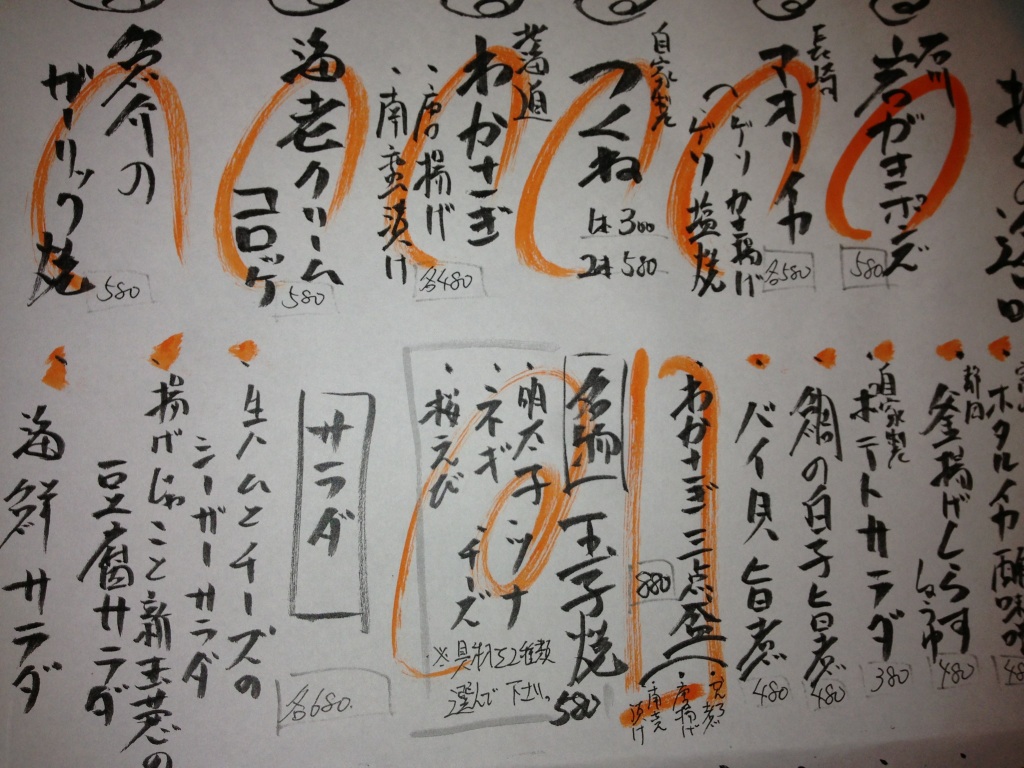 石川
岩がきポンズ
580
長崎
アオリイカ
・ゲソかき揚げ
・ゲソ塩焼
各580
自家製
つくね
1本 300
2本 580
わかさぎ
・唐揚げ
・南蛮漬け
各480
海老クリーム
コロッケ
580
魚介の
ガーリック焼
580
ホタルイカ酢味噌
静岡
釜揚げしらす
480
自家製
ポテートサラダ
380
鯛の白子旨煮
480
バイ貝旨煮
480
わかさぎ三点盛
・唐揚げ
880
名物
玉子焼
580
・明太子
・ツナ
・ネギ
・チーズ
・桜えび
※具材を2種類
選んで下さい。
サラダ
各680.
生ハムとチーズの
シーザーサラダ
揚げじゃこと新玉葱の
豆腐サラダ
海鮮サラダ